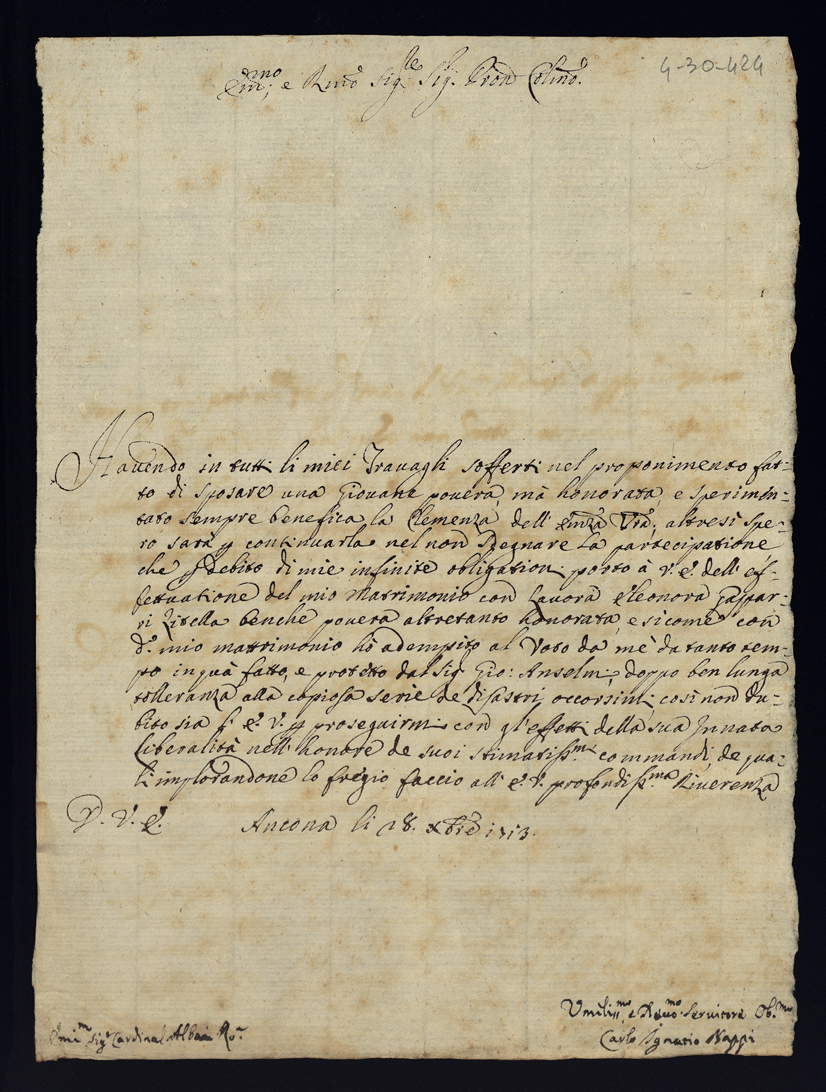 4-30-424
Em;mo e Rmo Sig.re Sig. Pron Colmo.
Havendo in tutti li miei Travagli sofferti nel proponimento fat=
to di sposare una Giovana povera, mà honorata, e sperimen=
tato sempre benefica la Clemenza dell' Emza Vra; altresi spe=
ro sarà p continuarla nel non sdegnare la partecipatione
che p debito di mie infinite obligationi porto à V. E. dell' ef=
fettuatione del mio Matrimonio con Laura Eleonora Gaspar=
ri Zitella benche povera altretanto honorata, e sicome con
d.o mio matrimonio hò adempito al Voto da mè da tanto tem=
po inquà fatto, e protetto dal Sig. Gio: Anselmi, doppo ben lunga
tolleranza alla copiosa serie de disastri occorsimi, così non du=
bito sia l' E. V. p proseguirmi con gl' effetti della sua Innata
liberalità nell' honore de suoi stimatiss.mi commandi, de qua=
li implorandone lo fregio faccio all' E. V. profondiss.ma Riverenza
D. V. E. Ancona li 28. Xbre 1713.
Umiliss.mo e Devmo. Servitore Ob.mo
Carlo Ignatio Nappi
Emi.mo Sig.r Cardinal Albani